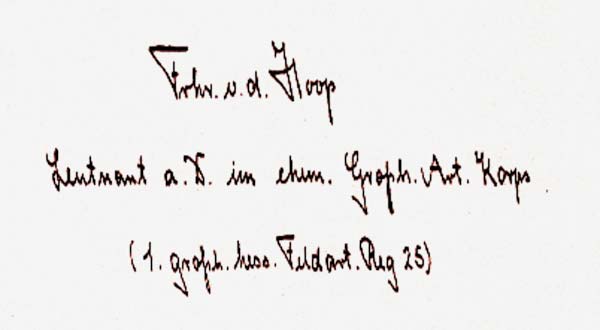 Frhr. v. d. Hoop
Leutnant a. D. im ehem. Großh. Art. Korps
(1. großh. hess. Feldart. Reg 25)